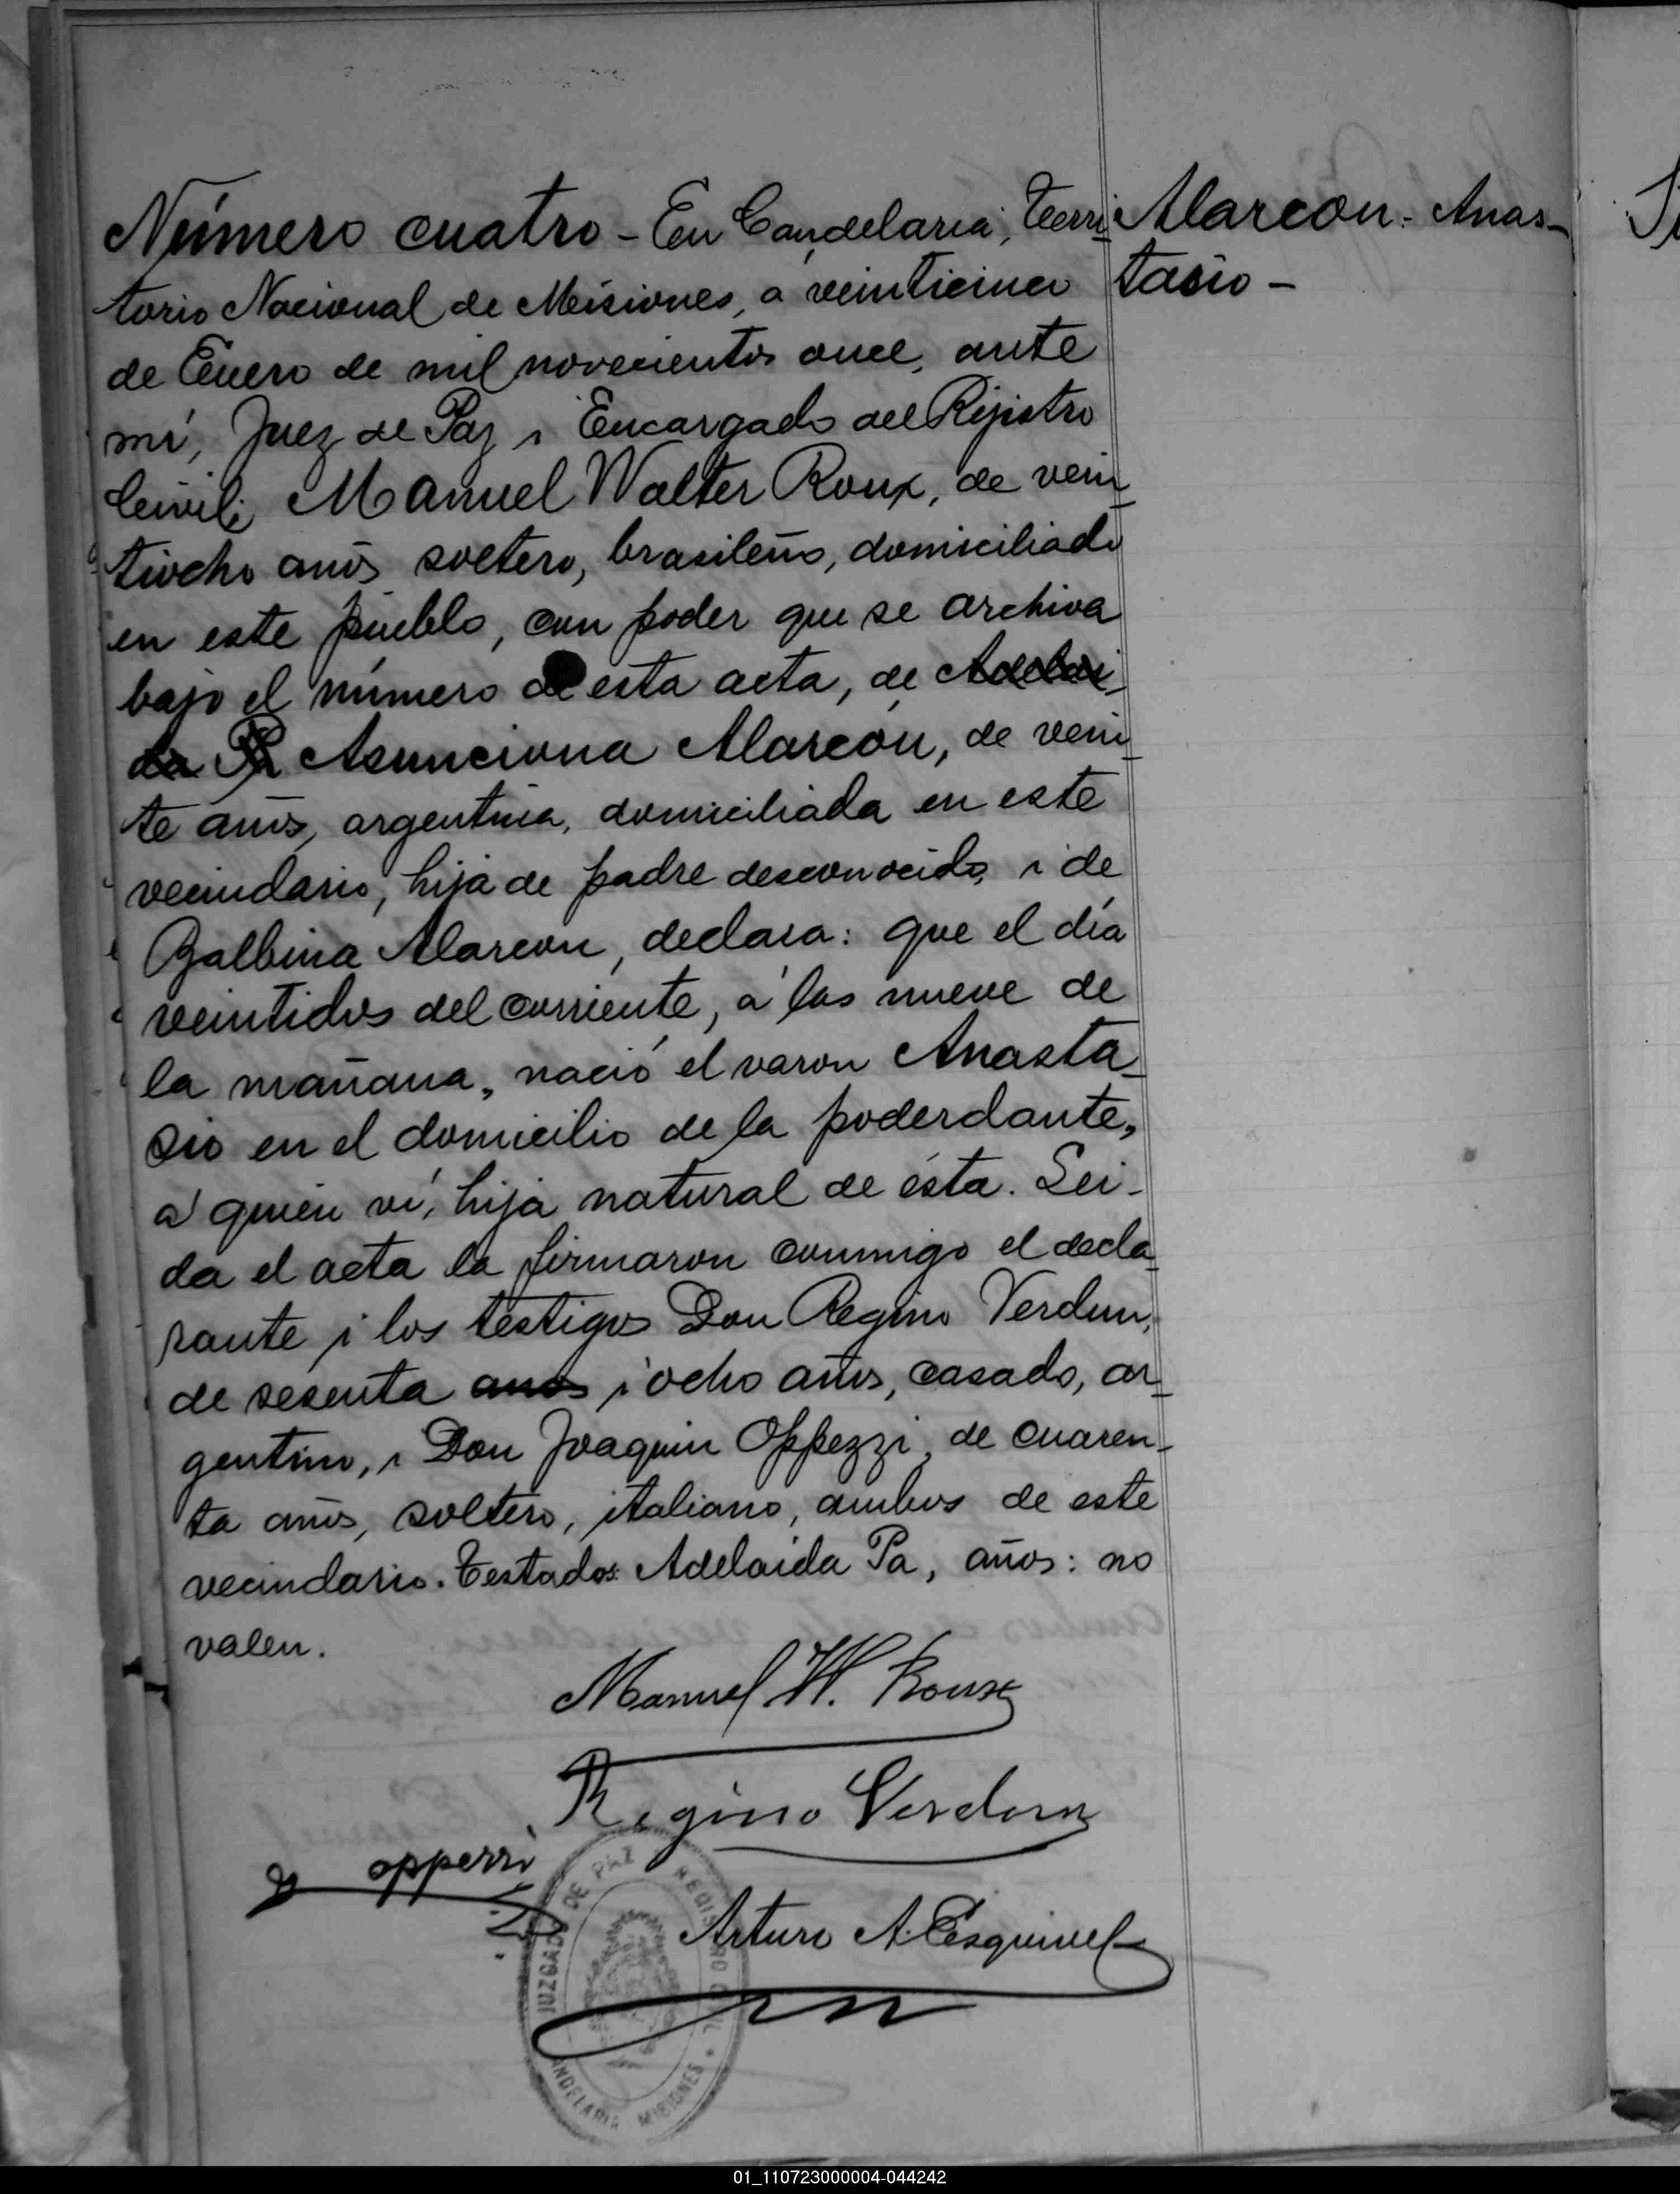 Número cuatro - En Candelaria, Terri-
torio Nacional de Misiones, a veinticinco
de Enero de mil novecientos once, ante
mí, Juez de Paz i Encargado del Rejistro
Civil: Manuel Walter Roux, de vein-
tiocho años soltero, brasileño, domiciliado
en este pueblo, con poder que se archiva
bajo el número de esta acta, de Adelai-
da Pa Asunciona Alarcón, de vein-
te años, argentina, domiciliada en este
vecindario, hija de padre desconocido, i de
Balbina Alarcon, declara: que el día
veintidos del corriente, a las nueve de
la mañana, nació el varon Anasta-
sio en el domicilio de la poderdante,
a quien ví, hijo natural de ésta. Lei-
da el acta la firmaron conmigo el decla-
rante i los testigos Don Regino Verdun,
de sesenta anos i ocho años, casado, ar-
gentino, i Don Joaquin Oppezzi, de cuaren-
ta años, soltero, italiano, ambos de este
vecindario. Testados: Adelaida Pa, años: no
valen.
Alarcón - Anas-
tasio -
Manuel W. Roux
Regino Verdun
opperzi
Arturo A. Esquivel
JUZGADO DE PAZ REGISTRO CIVIL
CANDELARIA MISIONES
01_110723000004-044242